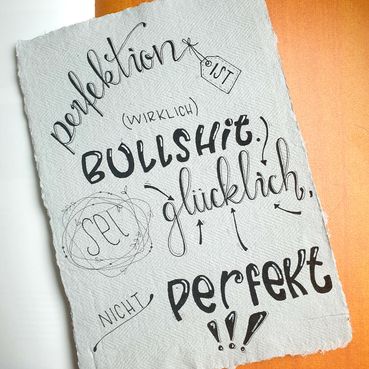 perfektion IST
(WIRKLICH)
BULLSHit.
SEI glücklich,
NICHT perfekt
!!!